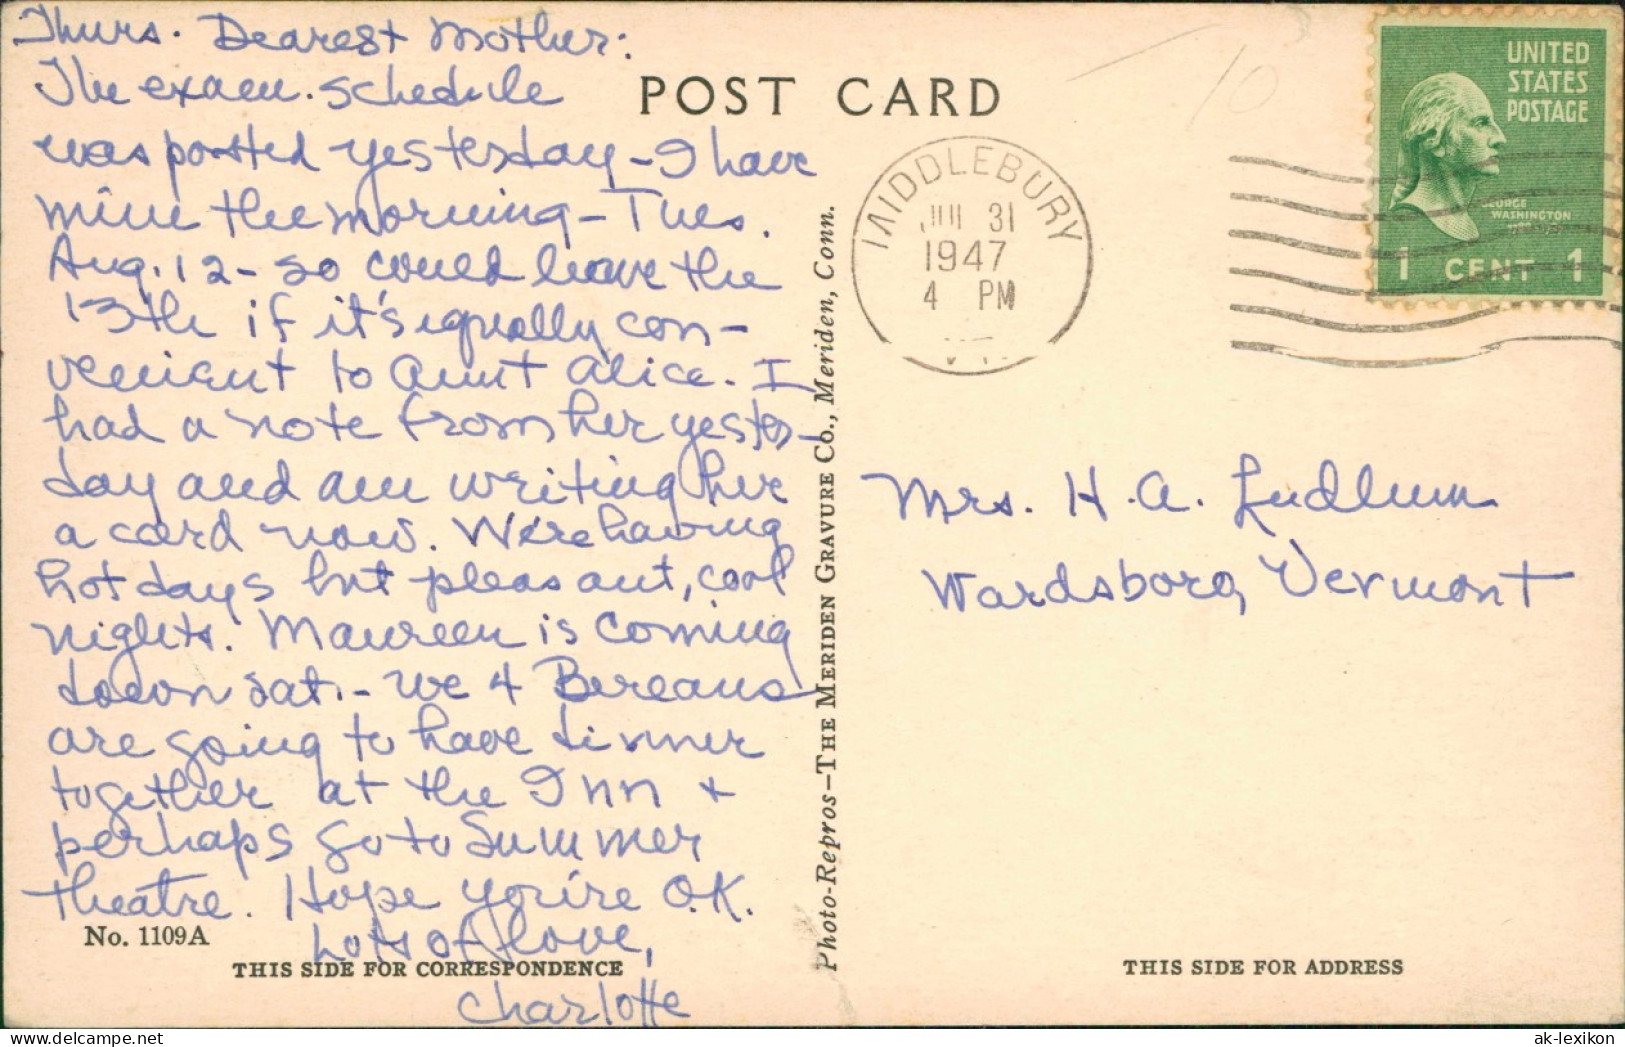 Thurs. Dearest Mother:
The exam. schedule
was posted yesterday - I have
mine the morning - Tues.
Aug. 12 - so could leave the
13th if it's equally con-
venient to Aunt Alice. I
had a note from her yester-
day and am writing her
a card now. We're having
hot days but pleasant, cool
nights. Maureen is coming
down Sat. - we 4 Bereans
are going to have dinner
together at the Inn +
perhaps go to Summer
theatre. Hope you're O.K.
Lots of love,
Charlotte
No. 1109A
THIS SIDE FOR CORRESPONDENCE
POST CARD
Photo-Repros-THE MERIDEN GRAVURE CO., Meriden, Conn.
MIDDLEBURY
JUL 31
1947
4 PM
VT.
UNITED
STATES
POSTAGE
GEORGE
WASHINGTON
1 CENT 1
10
Mrs. H. A. Ludlum
Wardsboro, Vermont
THIS SIDE FOR ADDRESS
www.delcampe.net
ak-lexikon